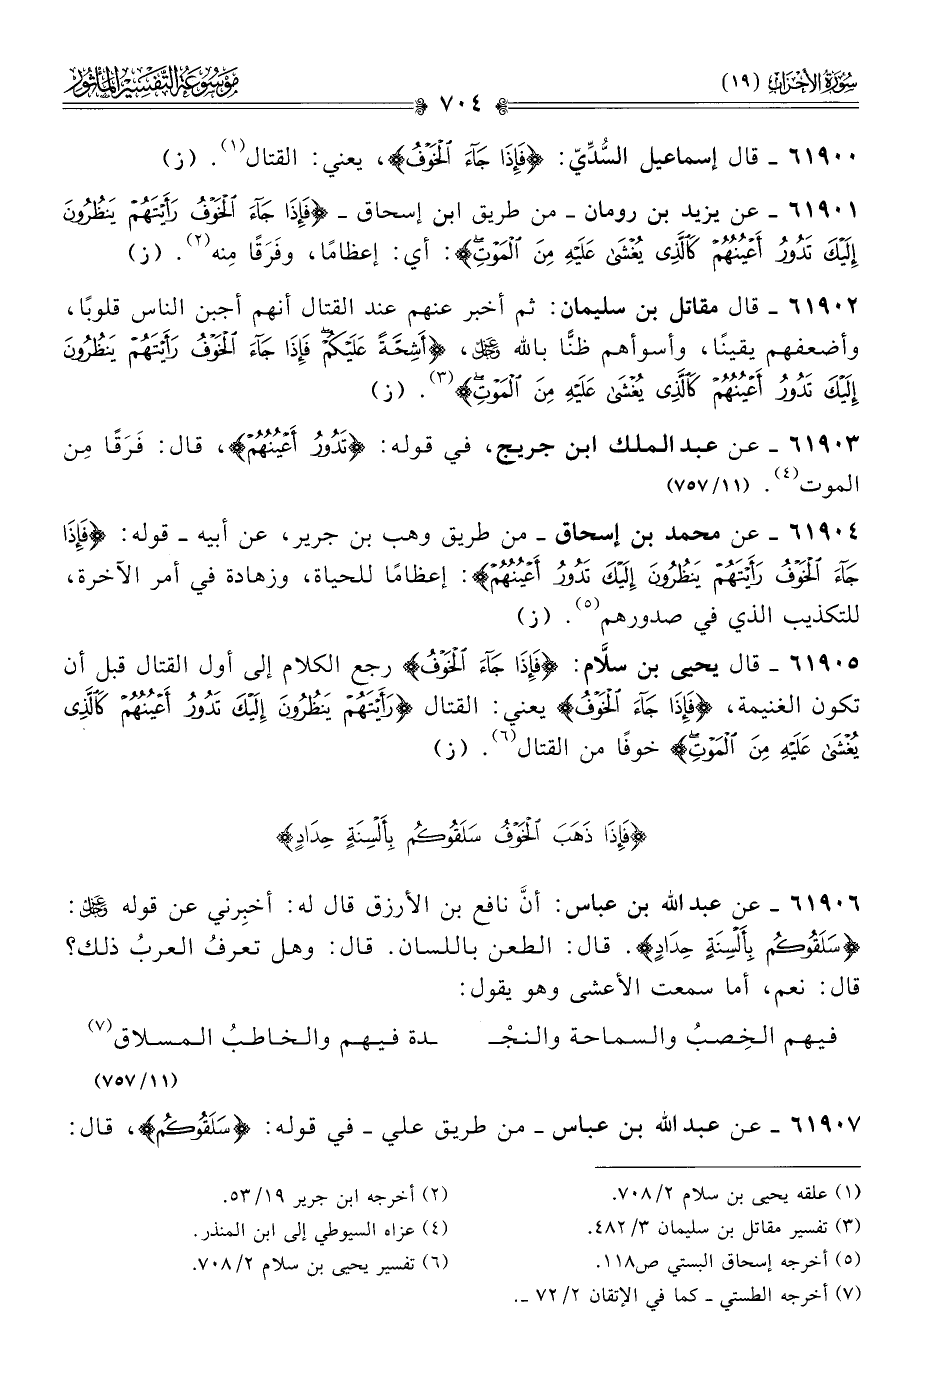 سُورَةُ الأَحْزَابِ (١٩)
٧٠٤
مَوْسُوعَةُ التَّفْسِيرِ المَأْثُورِ
٦١٩٠٠ ـ قال إسماعيل السُّدِّيّ: ﴿فَإِذَا جَآءَ ٱلْخَوْفُ﴾، يعني: القتال(١). (ز)
٦١٩٠١ ـ عن يزيد بن رومان ـ من طريق ابن إسحاق ـ ﴿فَإِذَا جَآءَ ٱلْخَوْفُ رَأَيْتَهُمْ يَنظُرُونَ
إِلَيْكَ تَدُورُ أَعْيُنُهُمْ كَٱلَّذِى يُغْشَىٰ عَلَيْهِ مِنَ ٱلْمَوْتِۖ﴾: أي: إعظامًا، وفَرَقًا مِنه(٢). (ز)
٦١٩٠٢ ـ قال مقاتل بن سليمان: ثم أخبر عنهم عند القتال أنهم أجبن الناس قلوبًا،
وأضعفهم يقينًا، وأسوأهم ظنًّا بالله ﷿، ﴿أَشِحَّةً عَلَيْكُمْۖ فَإِذَا جَآءَ ٱلْخَوْفُ رَأَيْتَهُمْ يَنظُرُونَ
إِلَيْكَ تَدُورُ أَعْيُنُهُمْ كَٱلَّذِى يُغْشَىٰ عَلَيْهِ مِنَ ٱلْمَوْتِۖ﴾(٣). (ز)
٦١٩٠٣ ـ عن عبد الملك ابن جريج، في قوله: ﴿تَدُورُ أَعْيُنُهُمْ﴾، قال: فَرَقًا مِن
الموت(٤). (٧٥٧/١١)
٦١٩٠٤ ـ عن محمد بن إسحاق ـ من طريق وهب بن جرير، عن أبيه ـ قوله: ﴿فَإِذَا
جَآءَ ٱلْخَوْفُ رَأَيْتَهُمْ يَنظُرُونَ إِلَيْكَ تَدُورُ أَعْيُنُهُمْ﴾: إعظامًا للحياة، وزهادة في أمر الآخرة،
للتكذيب الذي في صدورهم(٥). (ز)
٦١٩٠٥ ـ قال يحيى بن سلَّام: ﴿فَإِذَا جَآءَ ٱلْخَوْفُ﴾ رجع الكلام إلى أول القتال قبل أن
تكون الغنيمة، ﴿فَإِذَا جَآءَ ٱلْخَوْفُ﴾ يعني: القتال ﴿رَأَيْتَهُمْ يَنظُرُونَ إِلَيْكَ تَدُورُ أَعْيُنُهُمْ كَٱلَّذِى
يُغْشَىٰ عَلَيْهِ مِنَ ٱلْمَوْتِۖ﴾ خوفًا من القتال(٦). (ز)
﴿فَإِذَا ذَهَبَ ٱلْخَوْفُ سَلَقُوكُم بِأَلْسِنَةٍ حِدَادٍ﴾
٦١٩٠٦ ـ عن عبد الله بن عباس: أنَّ نافع بن الأرزق قال له: أخبِرني عن قوله ﷿:
﴿سَلَقُوكُم بِأَلْسِنَةٍ حِدَادٍ﴾. قال: الطعن باللسان. قال: وهل تعرفُ العربُ ذلك؟
قال: نعم، أما سمعت الأعشى وهو يقول:
فيهم الخِصبُ والسماحة والنجْـ ـدة فيهم والخاطبُ المسلاق(٧)
(٧٥٧/١١)
٦١٩٠٧ ـ عن عبد الله بن عباس ـ من طريق علي ـ في قوله: ﴿سَلَقُوكُم﴾، قال:
(١) علقه يحيى بن سلام ٧٠٨/٢.
(٢) أخرجه ابن جرير ٥٣/١٩.
(٣) تفسير مقاتل بن سليمان ٤٨٢/٣.
(٤) عزاه السيوطي إلى ابن المنذر.
(٥) أخرجه إسحاق البستي ص١١٨.
(٦) تفسير يحيى بن سلام ٧٠٨/٢.
(٧) أخرجه الطستي ـ كما في الإتقان ٧٢/٢ ـ.